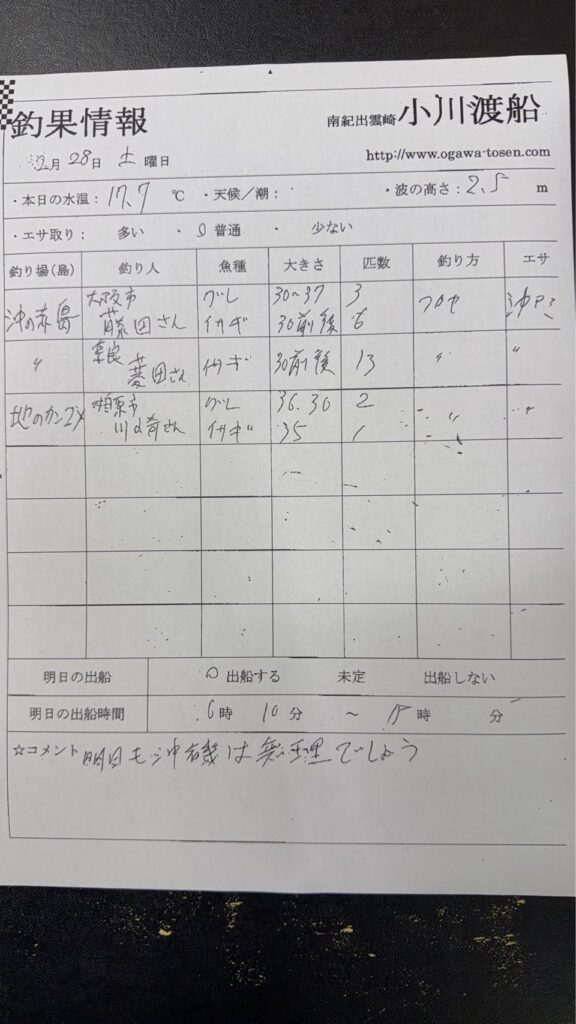 釣果情報
南紀出雲崎 小川渡船
2月 28日 土 曜日
http://www.ogawa-tosen.com
・本日の水温： 17.7 ℃ ・天候／潮： ・波の高さ： 2.5 m
・エサ取り： 多い ・ 普通 ・ 少ない
釣り場(島) 釣り人 魚種 大きさ 匹数 釣り方 エサ
沖の赤島 大阪市 グレ 30〜37 3 フカセ 沖アミ
藤田さん イサギ 30前後 6
〃 奈良 菱田さん イサギ 30前後 13 〃 〃
地のカンゴメ 柏原市 グレ 36.30 2 〃 〃
さん イサギ 35 1
明日の出船 ○ 出船する 未定 出船しない
明日の出船時間 6時 10分 〜 15時 分
☆コメント 明日も沖磯は無理でしょう